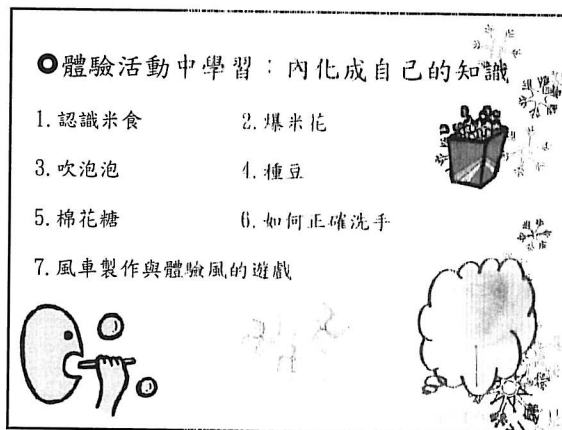 ◎體驗活動中學習：內化成自己的知識
1.認識米食 2.爆米花
3.吹泡泡 4.種豆
5.棉花糖 6.如何正確洗手
7.風車製作與體驗風的遊戲